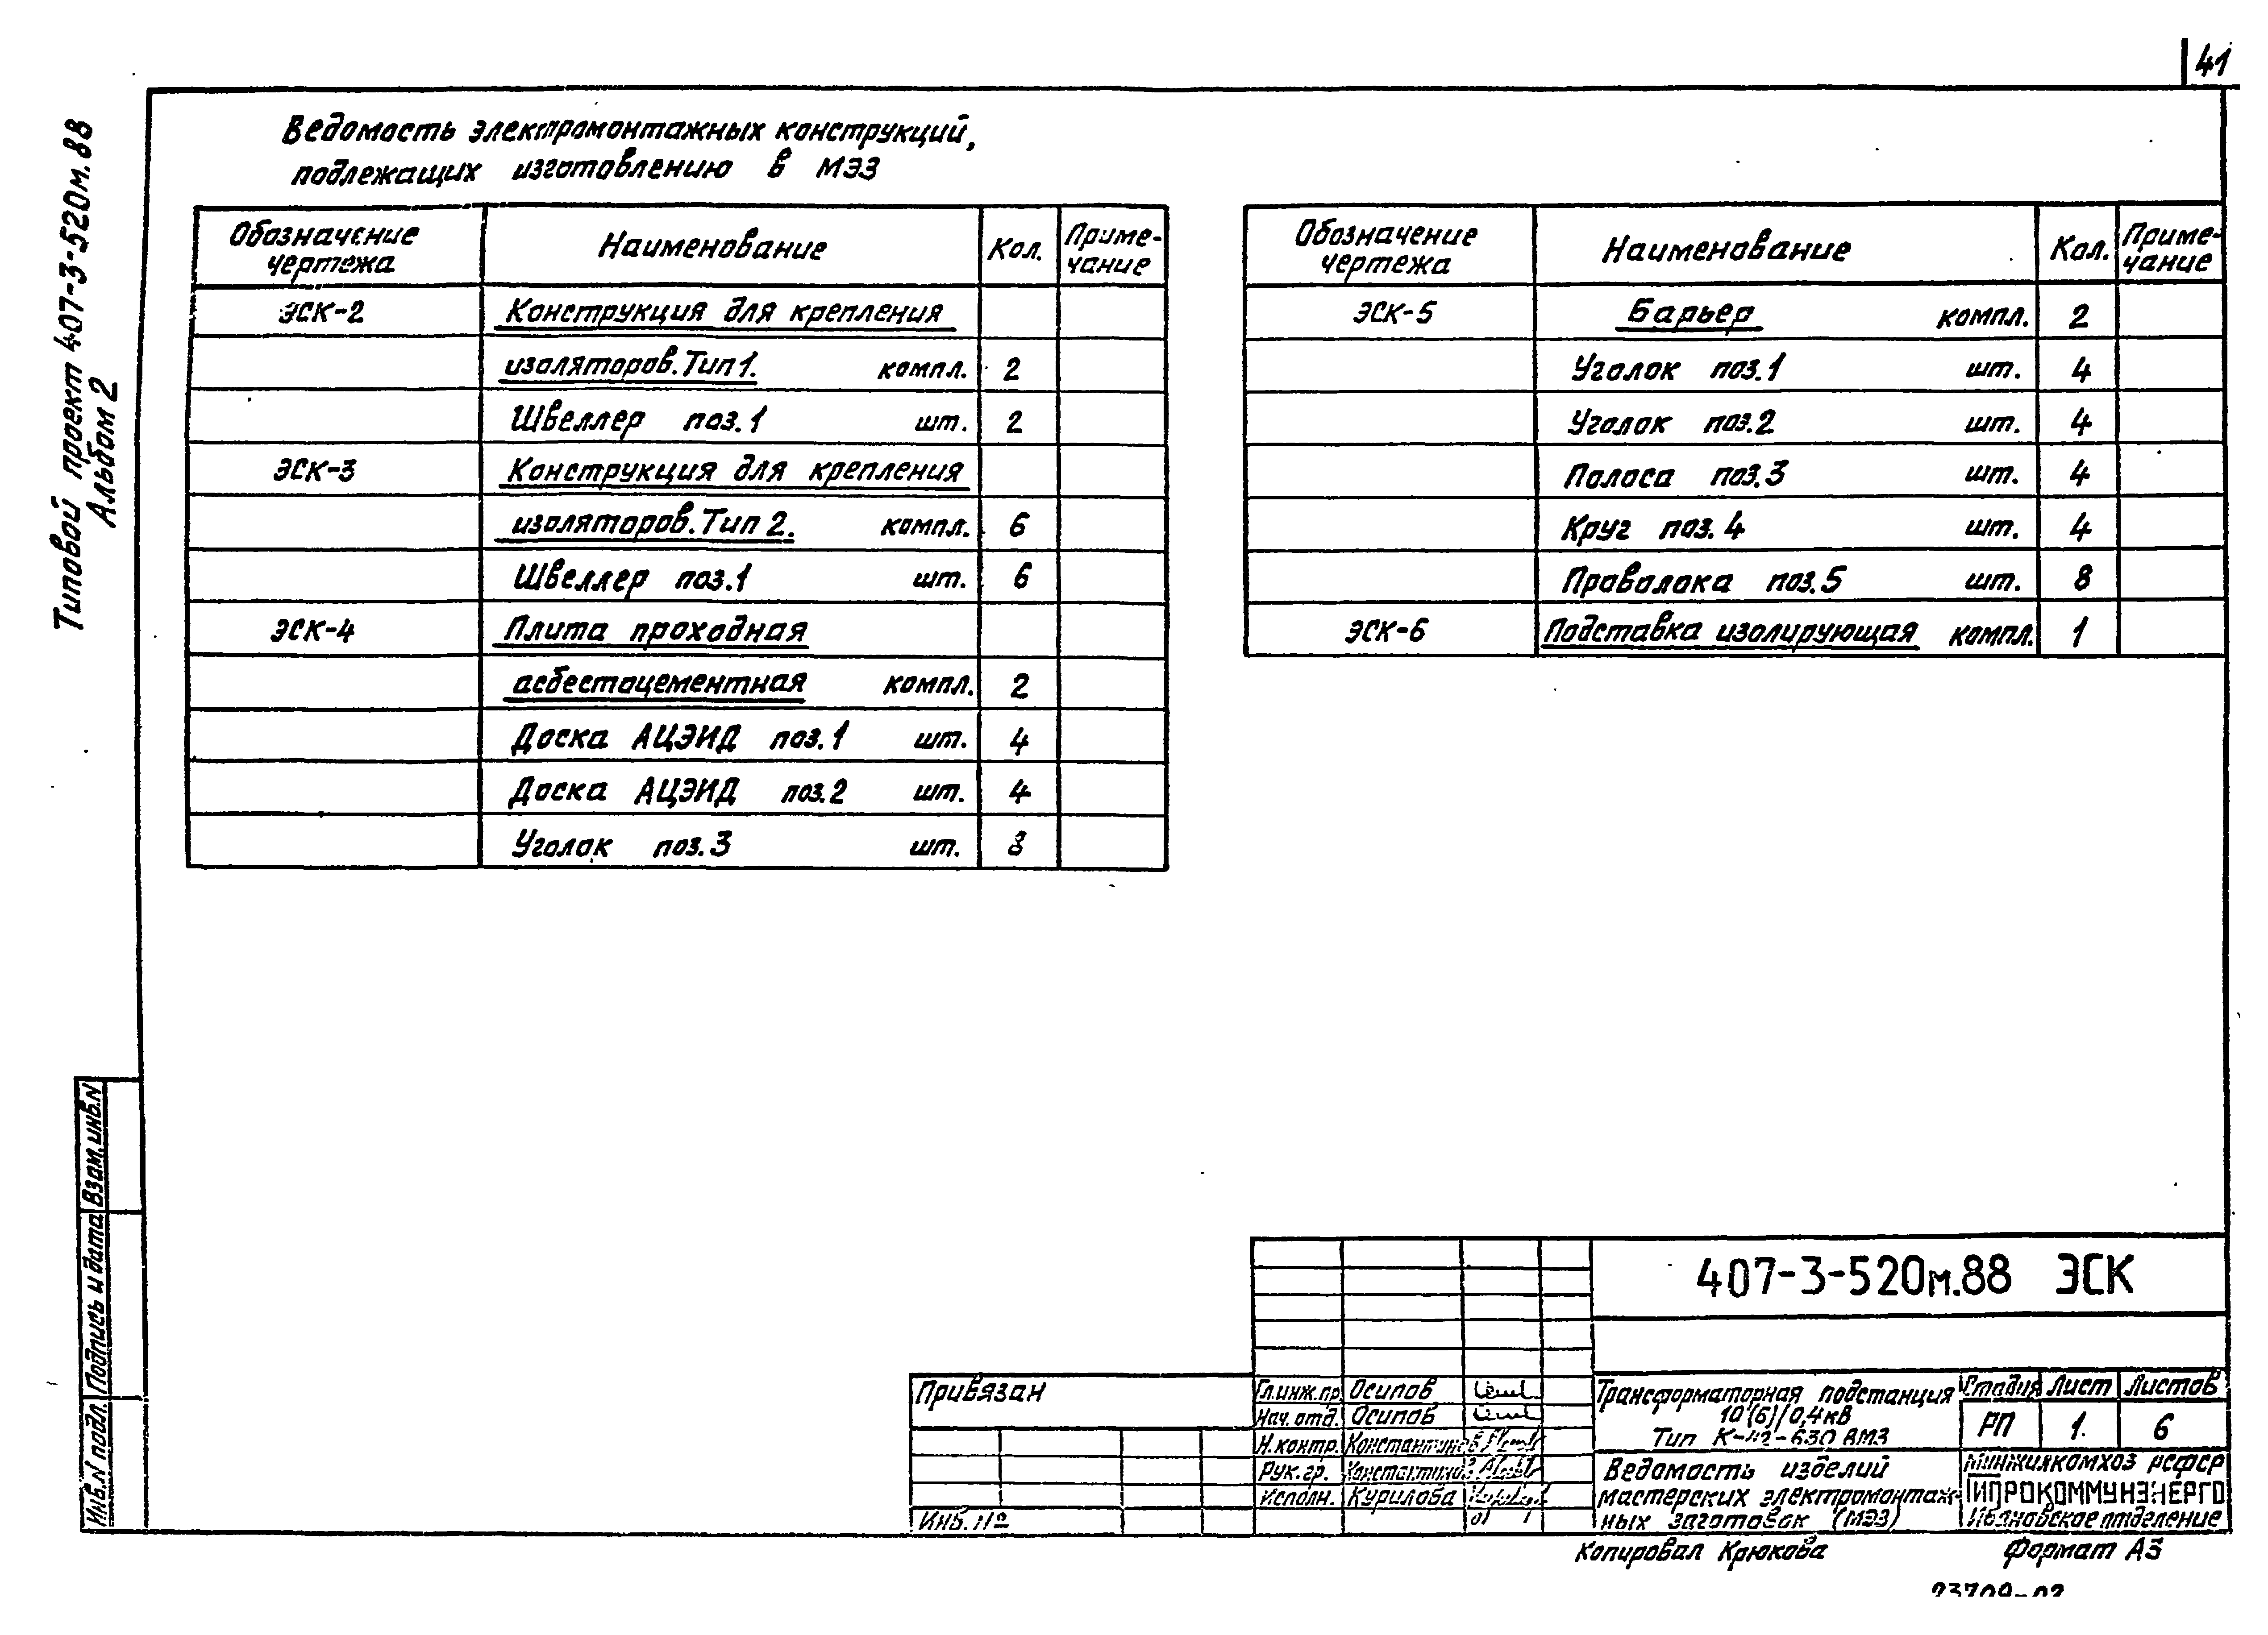 41
Типовой проект 407-3-520м.88
Альбом 2
Ведомость электромонтажных конструкций,
подлежащих изготовлению в МЭЗ
Обозначение чертежа Наименование Кол. Приме-чание
ЭСК-2 Конструкция для крепления
изоляторов. Тип 1. компл. 2
Швеллер поз.1 шт. 2
ЭСК-3 Конструкция для крепления
изоляторов. Тип 2. компл. 6
Швеллер поз.1 шт. 6
ЭСК-4 Плита проходная
асбестоцементная компл. 2
Доска АЦЭИД поз.1 шт. 4
Доска АЦЭИД поз.2 шт. 4
Уголок поз.3 шт. 8
Обозначение чертежа Наименование Кол. Приме-чание
ЭСК-5 Барьер компл. 2
Уголок поз.1 шт. 4
Уголок поз.2 шт. 4
Полоса поз.3 шт. 4
Круг поз.4 шт. 4
Проволока поз.5 шт. 8
ЭСК-6 Подставка изолирующая компл. 1
Инв.N подл. Подпись и дата Взам.инв.N
407-3-520м.88 ЭСК
Привязан
Инв. №
Гл.инж.пр. Осипов
Нач. отд. Осипов
Н.контр. Константинов
Рук.гр. Константинов
Исполн. Курилова
Трансформаторная подстанция
10(6)/0,4кВ
Тип К-42-630 ВМЗ
Стадия Лист Листов
РП 1. 6
Ведомость изделий
мастерских электромонтаж-
ных заготовок (МЭЗ)
Минжилкомхоз РСФСР
ГИПРОКОММУНЭНЕРГО
Ивановское отделение
Копировал Крюкова Формат А3
23709-02